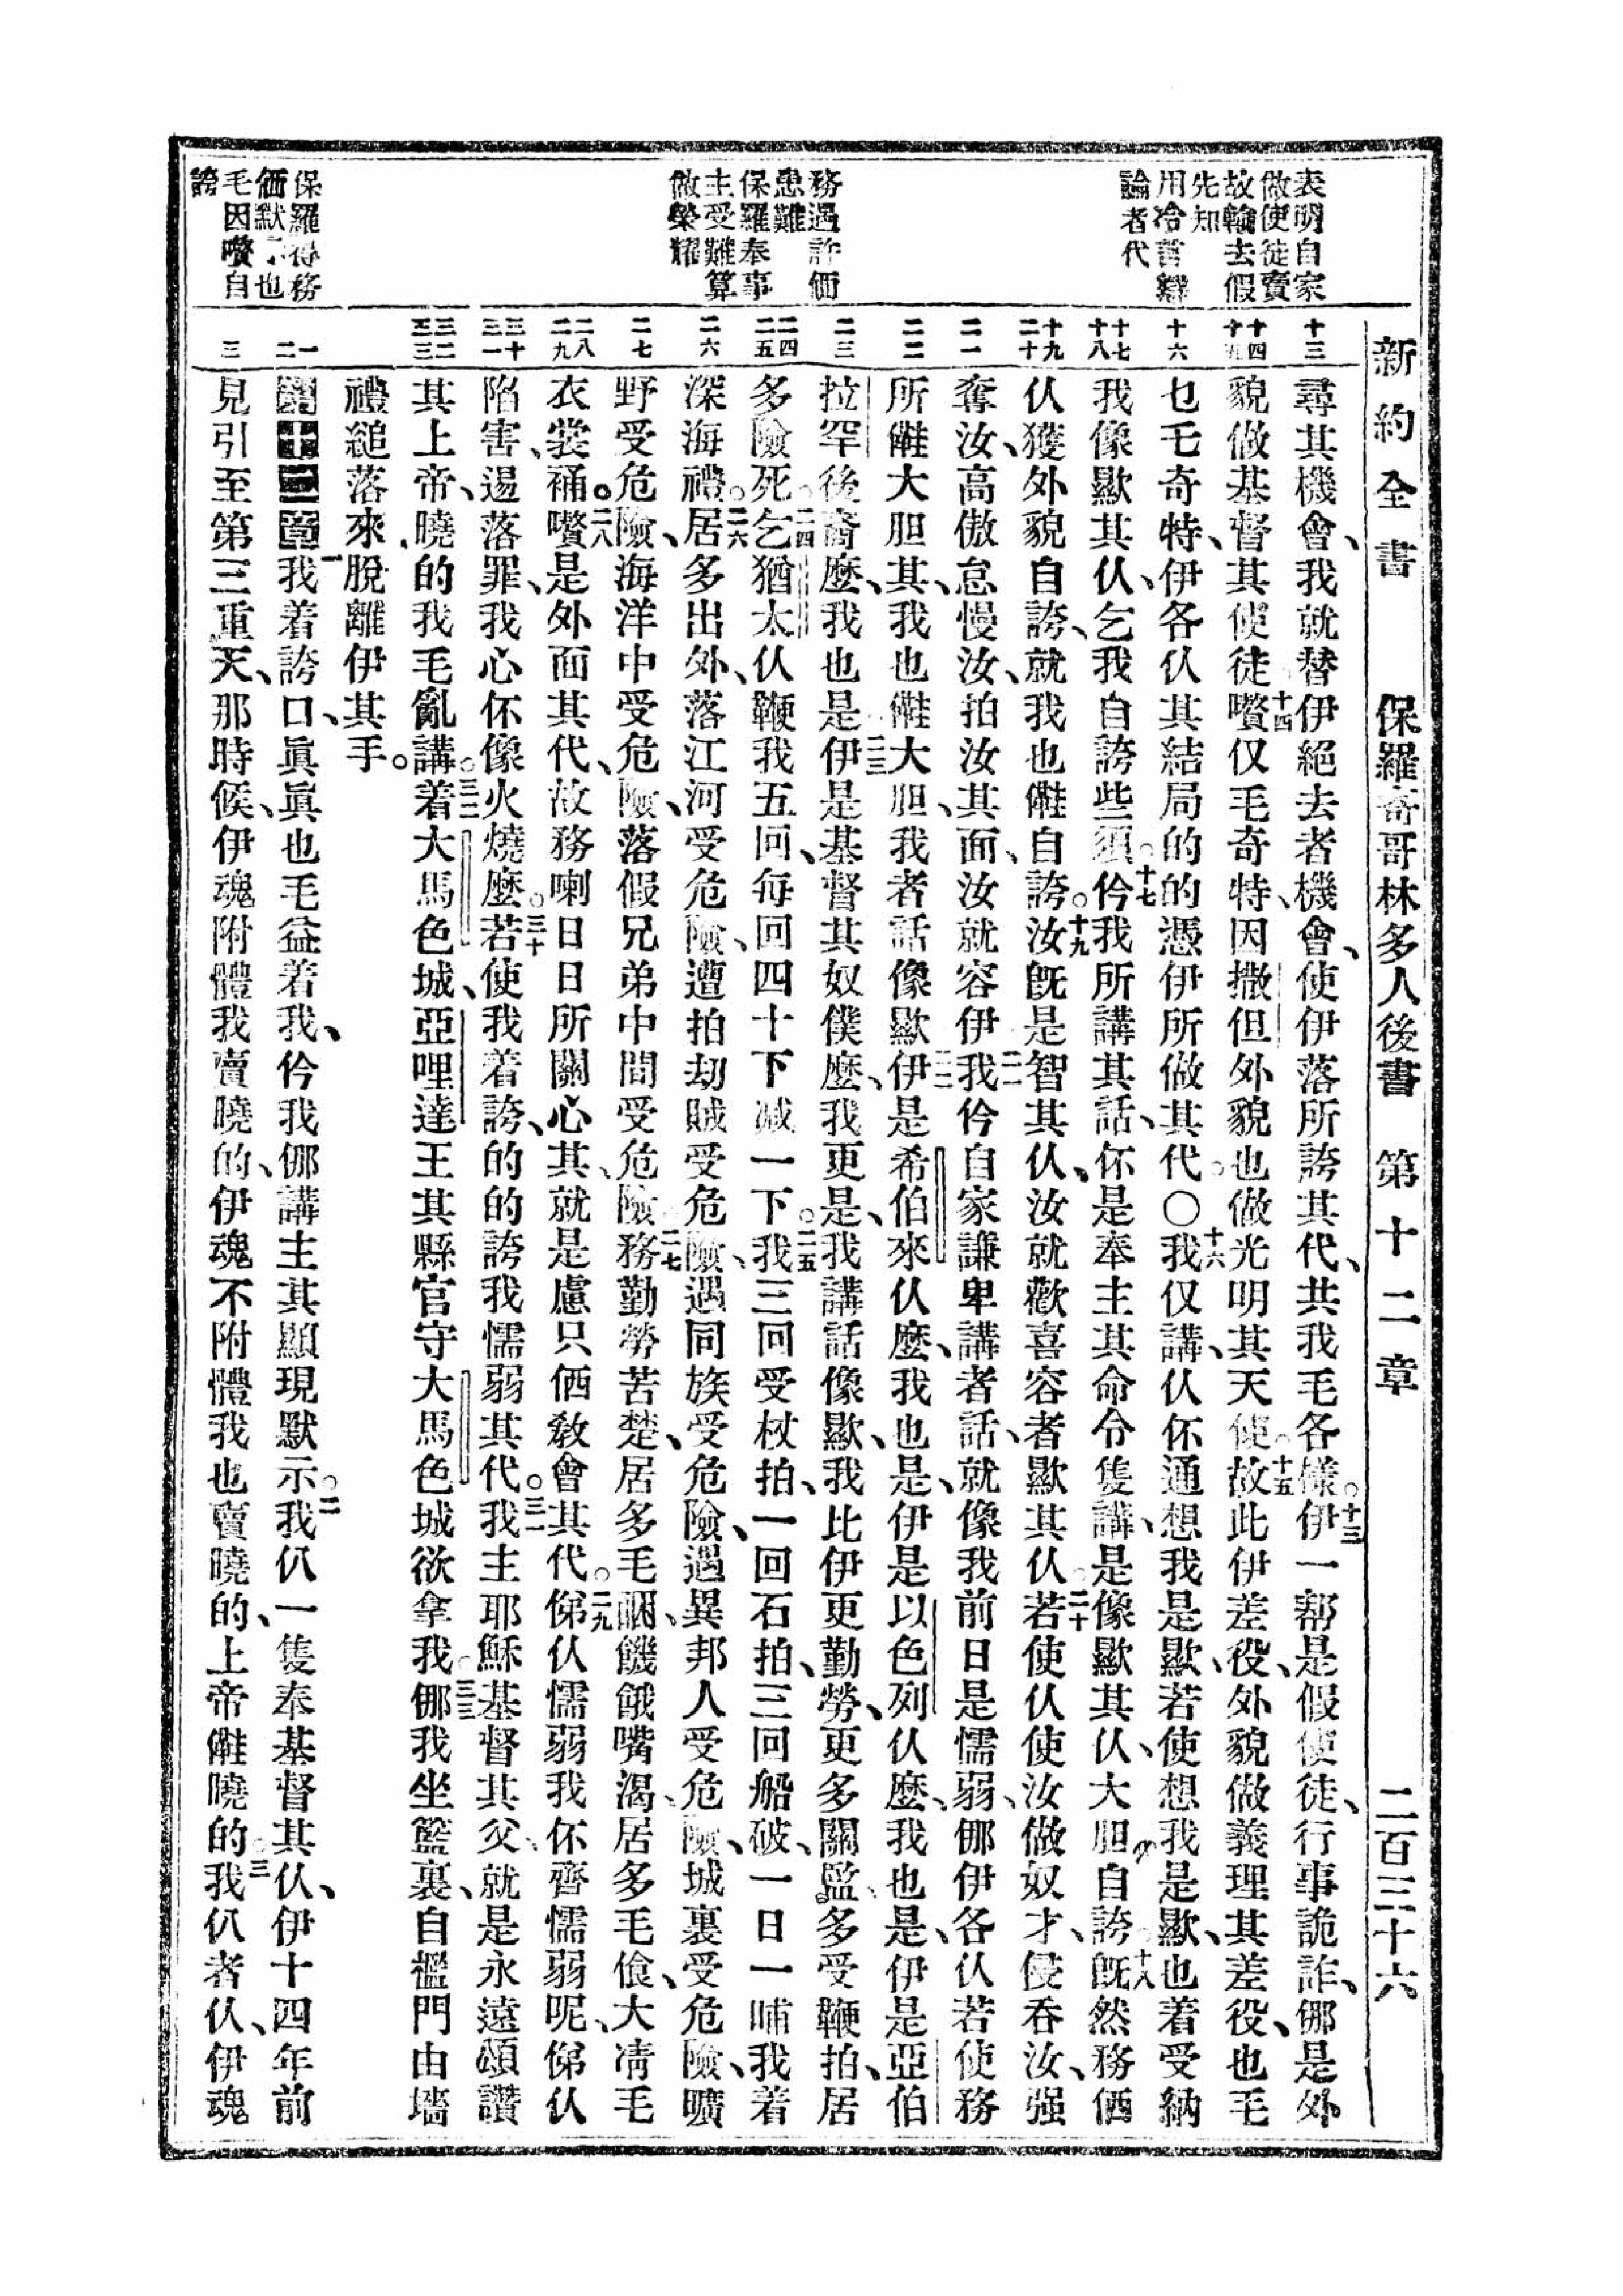 新約全書 保羅寄哥林多人後書 第十二章 二百三十六
表明自家
做使徒賣
故輸去假
先知
用冷言辯
論者代
務過許価
患難
保羅奉事
主受難算
做榮耀
保羅得務
価默示也
毛因嚽自
誇
十三
十四
十五
十六
十七
十八
十九
二十
二一
二二
二三
二四
二五
二六
二七
二八
二九
三十
三一
三二
三三
一
二
三
尋其機會、我就替伊絕去者機會、使伊落所誇其代、共我毛各樣。十三伊一幫是假使徒、行事詭詐、㑚是外
貌做基督其使徒。十四嚽仅毛奇特、因撒但外貌也做光明其天使。十五故此伊差役、外貌做義理其差役、也毛
乜毛奇特、伊各仈其結局的的憑伊所做其代。〇十六我仅講、仈伓通想我是歞、若使想我是歞、也着受納
我像歞其仈、乞我自誇些須。十七仱我所講其話、伓是奉主其命令隻講、是像歞其仈、大胆自誇。十八旣然務価
仈獲外貌自誇、就我也㒕自誇。十九汝旣是智其仈、汝就歡喜容者歞其仈。二十若使仈使汝做奴才、侵吞汝、强
奪汝、高傲怠慢汝、拍汝其面、汝就容伊。二一我仱自家謙卑講者話、就像我前日是懦弱、㑚伊各仈若使務
所㒕大胆其、我也㒕大胆、我者話像歞。二二伊是希伯來仈麽、我也是、伊是以色列仈麽、我也是、伊是亞伯
拉罕後裔麽、我也是。二三伊是基督其奴僕麽、我更是、我講話像歞、我比伊更勤勞、更多關監、多受鞭拍、居
多險死。二四乞猶太仈鞭我五回、每回四十下減一下。二五我三回受杖拍、一回石拍、三回船破、一日一晡我着
深海禮。二六居多出外、落江河受危險、遭拍刧賊受危險、遇同族受危險、遇異邦人受危險、城裏受危險、曠
野受危險、海洋中受危險、落假兄弟中間受危險。二七務勤勞苦楚、居多毛𥅘、饑餓嘴渴、居多毛飡、大凊毛
衣裳補。二八嚽是外面其代、故務喇日日所關心其、就是慮只価敎會其代。二九俤仈懦弱我伓齊懦弱呢、俤仈
陷害逿落罪、我心伓像火燒麽。三十若使我着誇、的的誇我懦弱其代。三一我主耶穌基督其父、就是永遠頌讚
其上帝、曉的我毛亂講。三二着大馬色城、亞哩達王其縣官守大馬色城欲拿我。三三㑚我坐籃裏、自檻門由墻
禮縋落來、脫離伊其手。
第十二章 一我着誇口、眞眞也毛益着我、仱我㑚講主其顯現默示。二我仈一隻奉基督其仈、伊十四年前
見引至第三重天、那時候、伊魂附體我賣曉的、伊魂不附體我也賣曉的、上帝㒕曉的。三我仈者仈、伊魂